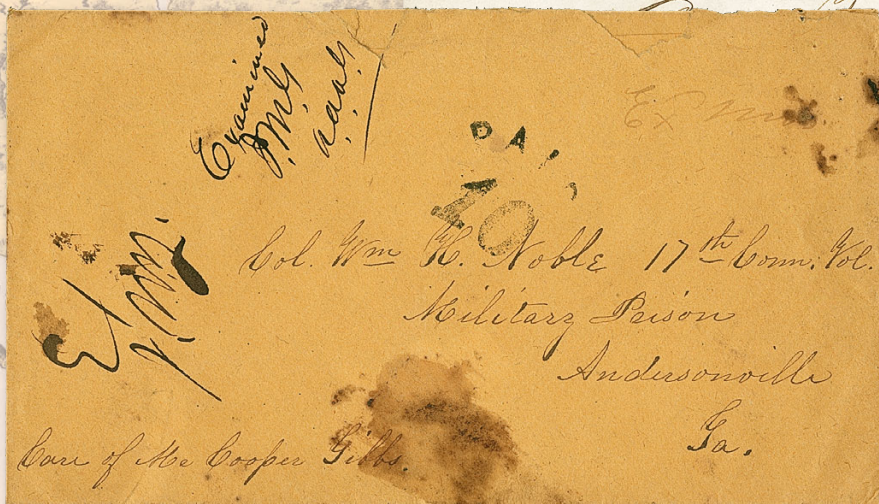 Examined
PAI
10
Col. Wm H. Noble 17th Conn. Vol.
Military Prison
Andersonville
Ga.
Care of Mr Cooper Gibbs.